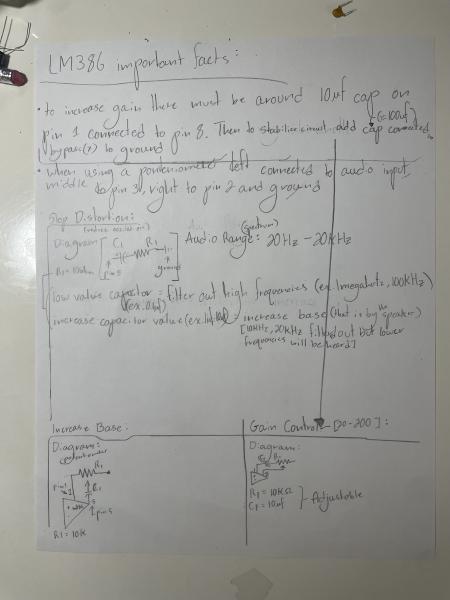 LM386 important facts:
• to increase gain there must be around 10uf cap on
pin 1 connected to pin 8. Then to stabilize circuit, add cap connected
bypass(7) to ground
• when using a left connected to audio input,
middle to pin 3, right to pin 2 and ground
Stop Distortion:
Diagram
C1 R1
pin 5
ground
R1 = 10ohm
(spectrum)
Audio Range: 20Hz - 20KHz
low value = filter out high frequencies (ex. 1megahertz, 100KHz)
increase capacitor value = increase base (that is by the speaker)
[10KHz, 20KHz filtered out but lower
frequencies will be heard]
Increase Base:
Diagram:
R1
pin 1
C1
pin 5
R1 = 10K
Gain Control - [20-200]:
Diagram:
C1 R1
R1 = 10KΩ
C1 = 10uf
Adjustable